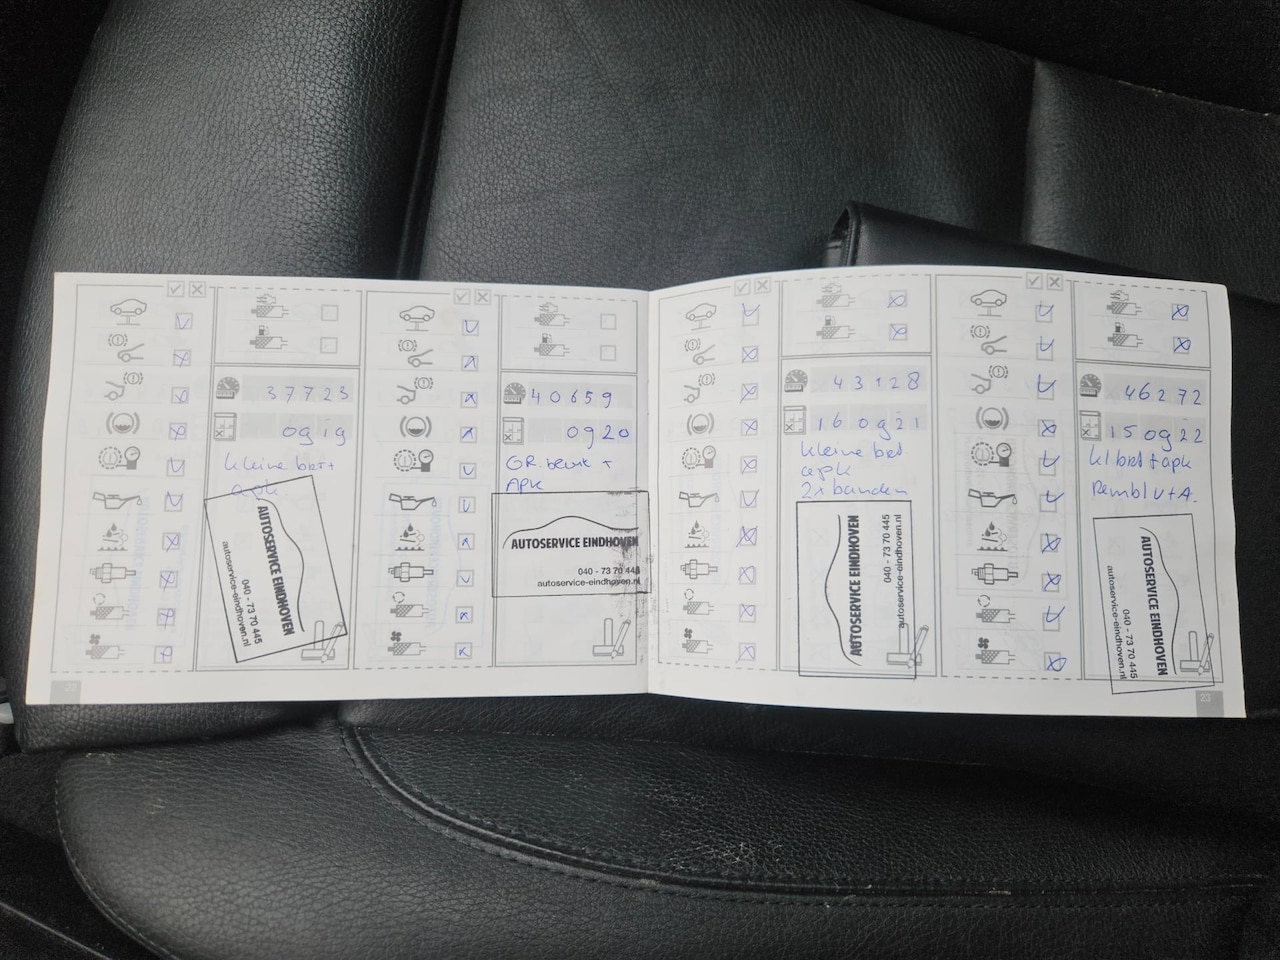 37723
0919
kleine bert+
apk
AUTOSERVICE EINDHOVEN
040 - 73 70 445
autoservice-eindhoven.nl
22
40659
0920
GR. beurt +
APK
AUTOSERVICE EINDHOVEN
040 - 73 70 445
autoservice-eindhoven.nl
43128
160921
kleine bet
apk
2x banden
AUTOSERVICE EINDHOVEN
040 - 73 70 445
autoservice-eindhoven.nl
46272
150922
kl bet + apk
Rembl V+A.
AUTOSERVICE EINDHOVEN
040 - 73 70 445
autoservice-eindhoven.nl
23